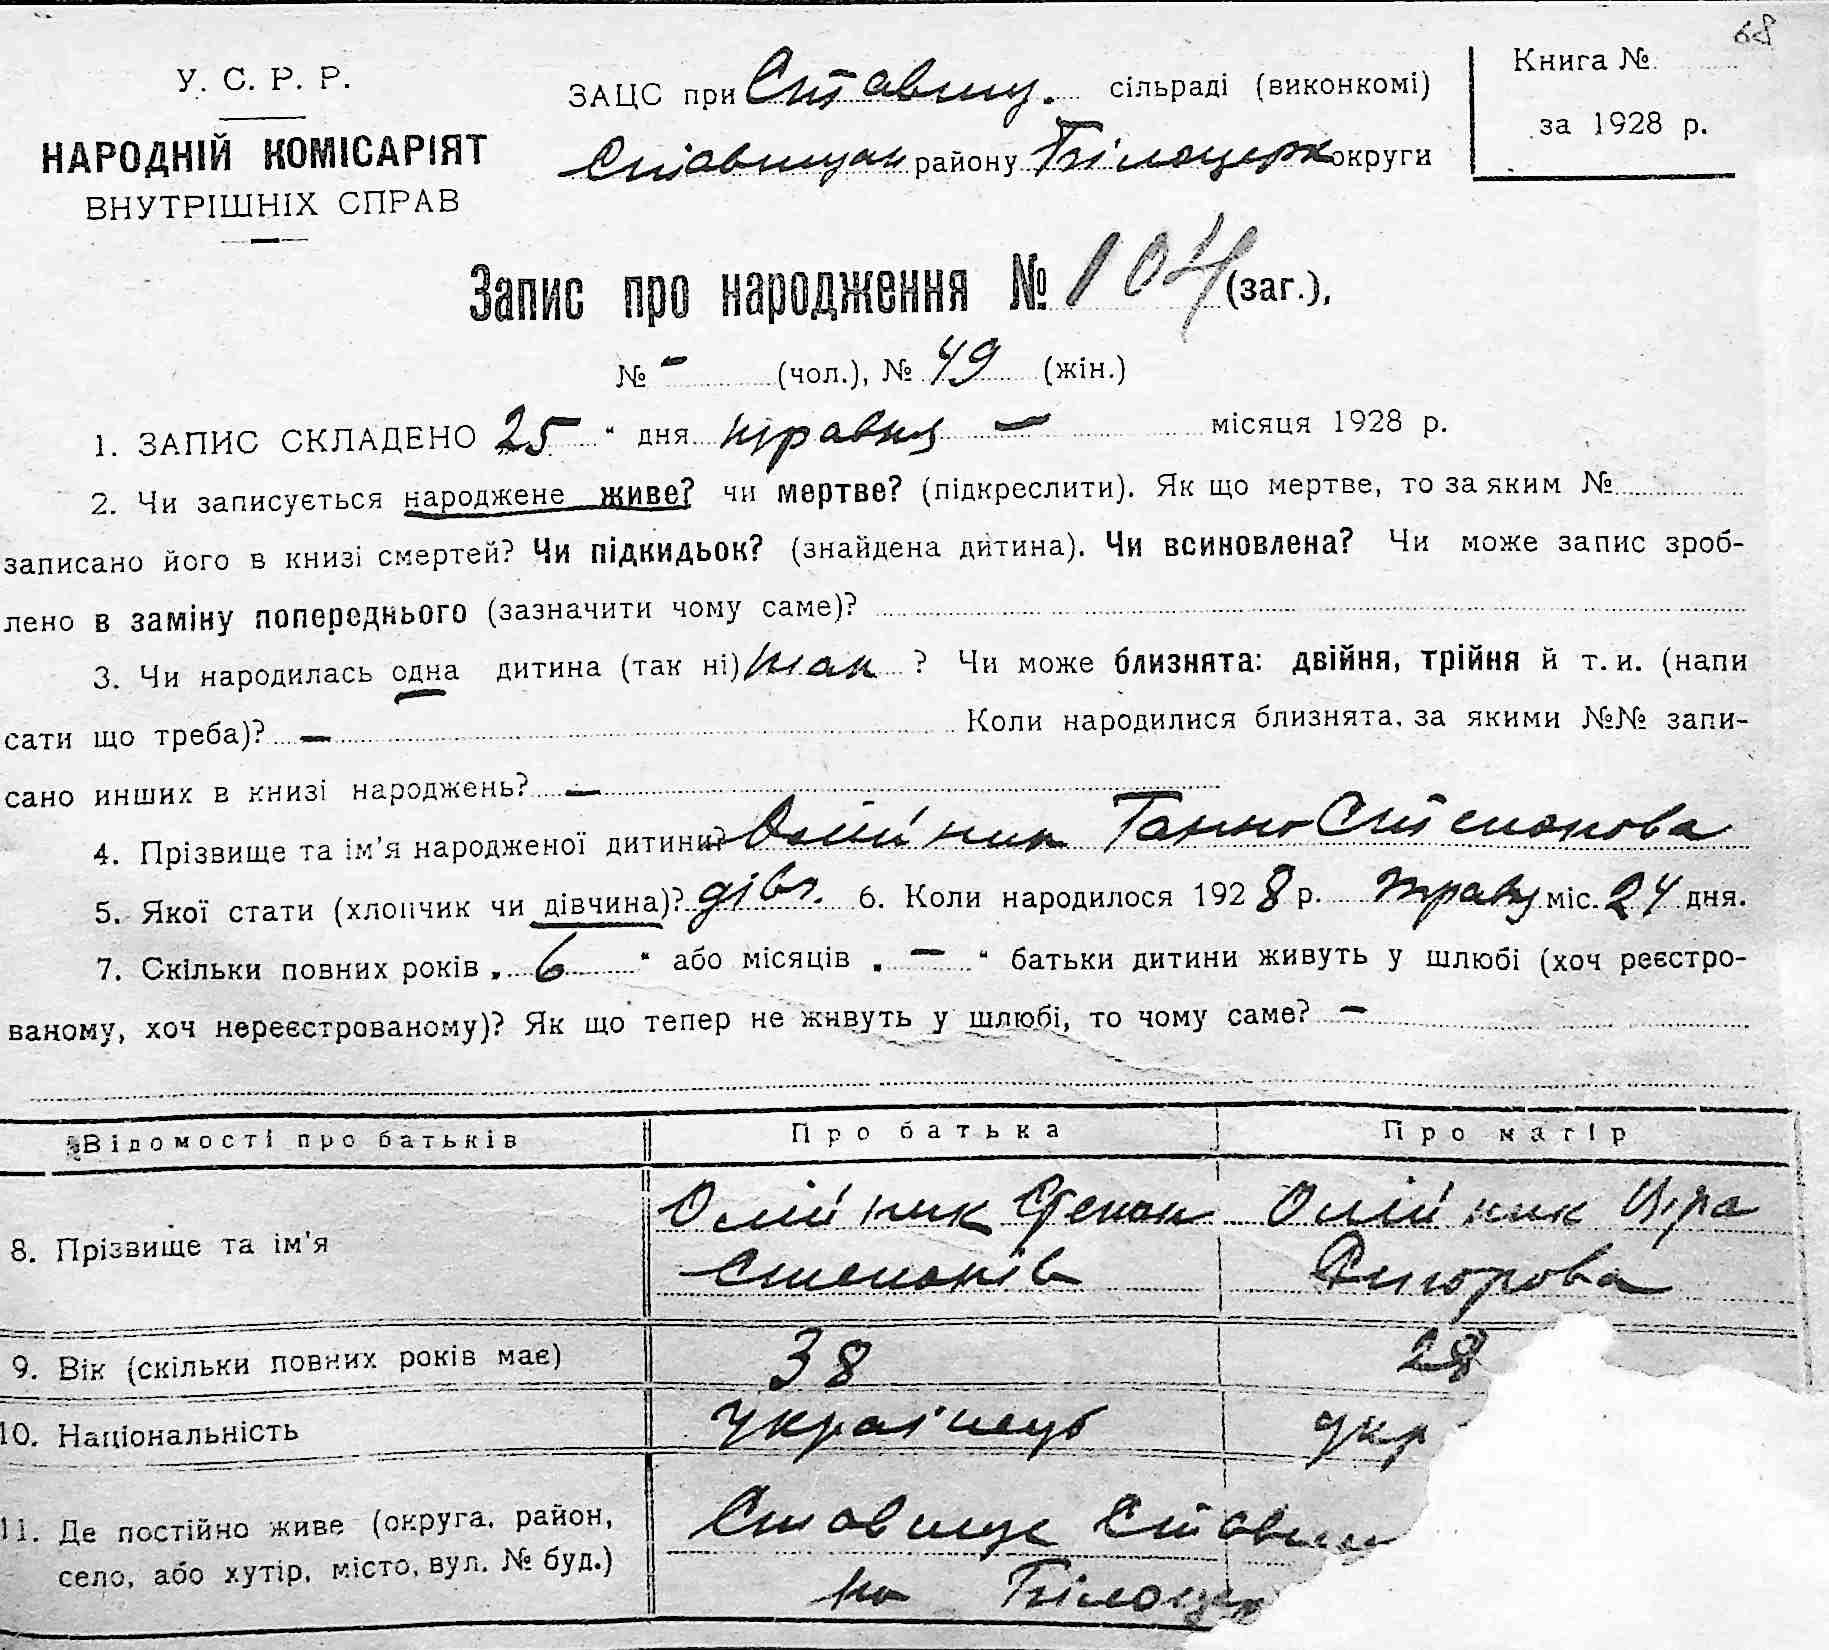 68
У. С. Р. Р.
НАРОДНІЙ КОМІСАРІЯТ
ВНУТРІШНІХ СПРАВ
ЗАЦС при Ставищ. сільраді (виконкомі)
Ставищан району Білоцерк округи
Книга №
за 1928 р.
Запис про народження № 104 (заг.),
№ - (чол.), № 49 (жін.)
1. ЗАПИС СКЛАДЕНО 25 " дня травня - місяця 1928 р.
2. Чи записується народжене живе? чи мертве? (підкреслити). Як що мертве, то за яким №
записано його в книзі смертей? Чи підкидьок? (знайдена дитина). Чи всиновлена? Чи може запис зроб-
лено в заміну попереднього (зазначити чому саме)?
3. Чи народилась одна дитина (так ні) так ? Чи може близнята: двійня, трійня й т. и. (напи
сати що треба)? - Коли народилися близнята, за якими №№ запи-
сано инших в книзі народжень? -
4. Прізвище та ім'я народженої дитини? Олійник Ганна Степанова
5. Якої стати (хлопчик чи дівчина)? дівч. 6. Коли народилося 1928 р. траву міс. 24 дня.
7. Скільки повних років „ 6 " або місяців „ - " батьки дитини живуть у шлюбі (хоч реєстро-
ваному, хоч нереєстрованому)? Як що тепер не живуть у шлюбі, то чому саме? -
Відомості про батьків Про батька Про матір
8. Прізвище та ім'я Олійник Степан Олійник
Степанів
9. Вік (скільки повних років має) 38 28
10. Національність українець укр
11. Де постійно живе (округа, район, Ставище Ставищ
село, або хутір, місто, вул. № буд.) на Білоцерк